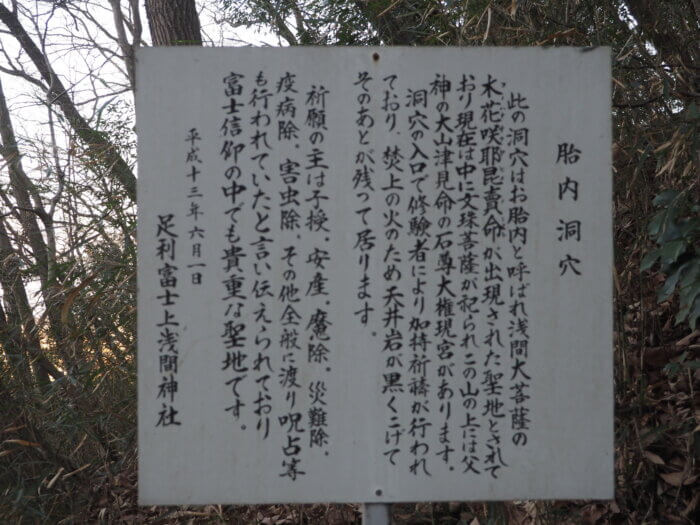 胎内洞穴
此の洞穴はお胎内と呼ばれ浅間大菩薩の
木花咲耶毘売命が出現された聖地とされて
おり現在は中に文珠菩薩が祀られこの山の上には父
神の大山津見命の石尊大権現宮があります。
洞穴の入口で修験者により加持祈祷が行われ
ており、焚上の火のため天井岩が黒くこげて
そのあとが残って居ります。
祈願の主は子授、安産、魔除、災難除、
疫病除、害虫除、その他全般に渡り呪占等
も行われていたと言い伝えられており
富士信仰の中でも貴重な聖地です。
平成十三年六月一日
足利富士上浅間神社